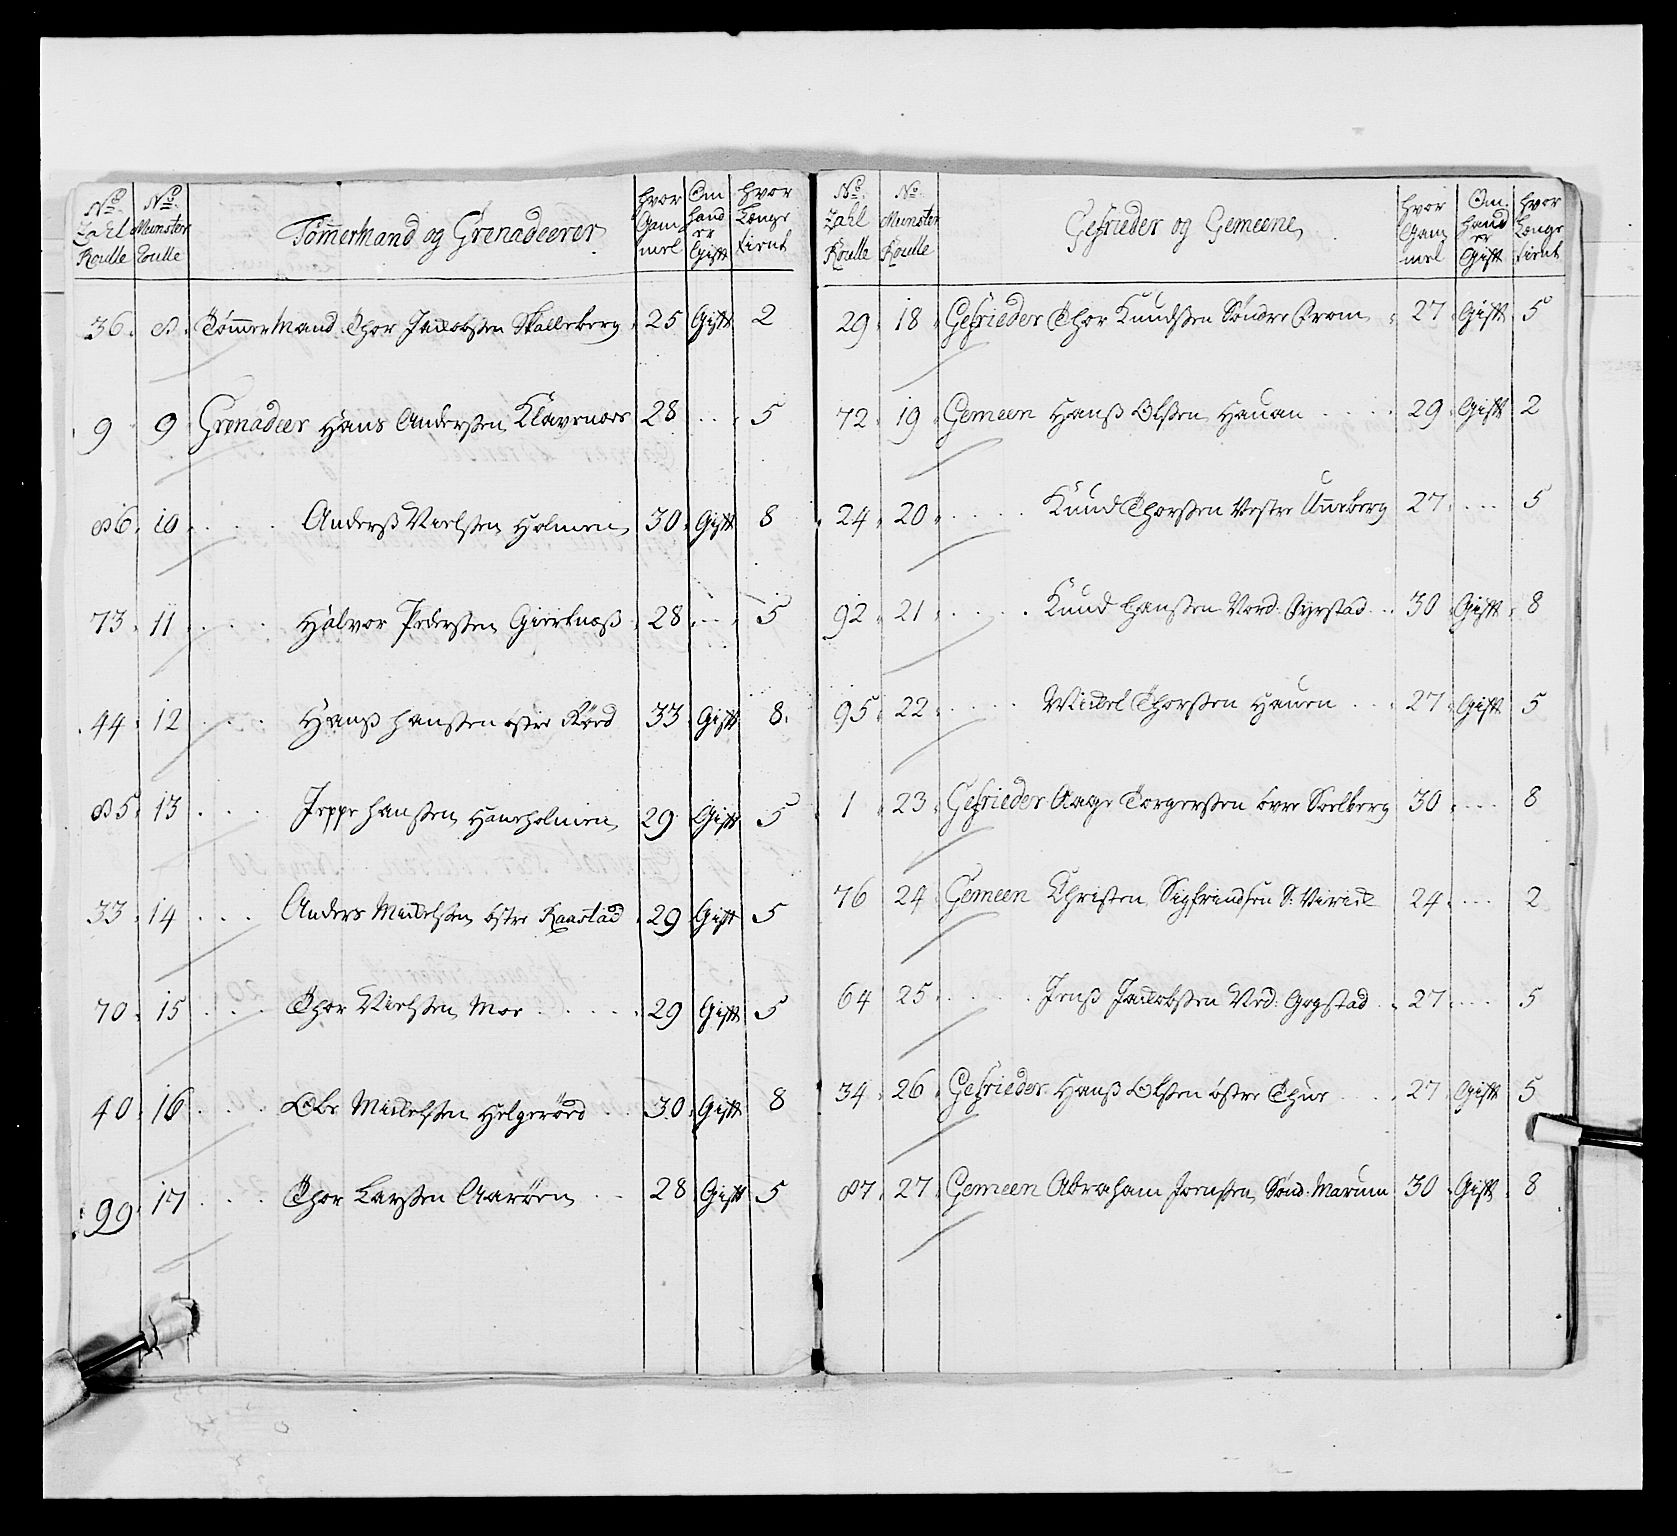 No. Zahl Roulle | No. Munster Roulle | Tømmermand og Grenadeerer | hvor Gammel | Om hand er Gift | hvor Længe tient
36. 8. Tømmer Mand Thor Jacobsen Skalleberg 25 Gift 2
9 9 Grenadeer Hans Andersen Klavenæs 28 . . . 5
86. 10. . . . Anderss Nielssen Holmen 30. Gift 8
73. 11 . . . Halvor Pederssen Gierknæss 28 . . . 5
44. 12 . . . Hanss Hanssen østre Rørd 33 Gift 8.
85. 13 . . . Jeppe Hanssen Haneholmen 29 Gift 5
33. 14 . . . Anders Michelssen østre Raastad 29 Gift 5
70. 15 . . . Thor Nielssen Moe . . . 29 Gift 5
40. 16 . . . Ole Michelssen Helgerød . . 30. Gift 8
99. 17 . . . Thor Larssen Aarøen . . 28 Gift 5
No. Zahl Roulle | No. Munster Roulle | Gefrieder og Gemeene | hvor Gammel | Om hand er Gift | hvor Længe tient
29. 18. Gefrieder Thor Knudssen Søndre 27 Gift 5
72. 19. Gemeen Hanss Olssen Hauan . . . 29. Gift 2
24. 20. . . . Knud Thorssen Vestre Unneberg 27 . . . 5
92. 21. . . . Knud Hanssen Nord: . . 30 Gift 8
95. 22. . . . Michel Thorssen Hauen . . 27 Gift 5
1. 23. Gefrieder Aage Torgerssen øvre Soelberg 30 . . . 8
76 24. Gemeen Christen Sigfridsen S: 24 . . . 2
64 25. . . . Jenss Jacobssen Nord: Gogstad . . 27 . . . 5
34 26. Gefrieder Hanss Olssen østre Thue . . . 27 Gift 5
87. 27. Gemeen Abraham Jorenssen Sønd: Marum 30. Gift 8